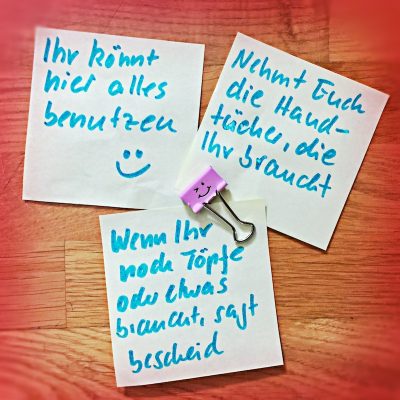 Ihr könnt
hier alles
benutzen
Nehmt Euch
die Hand-
tücher, die
Ihr braucht
Wenn Ihr
noch Töpfe
oder etwas
braucht, sagt
bescheid